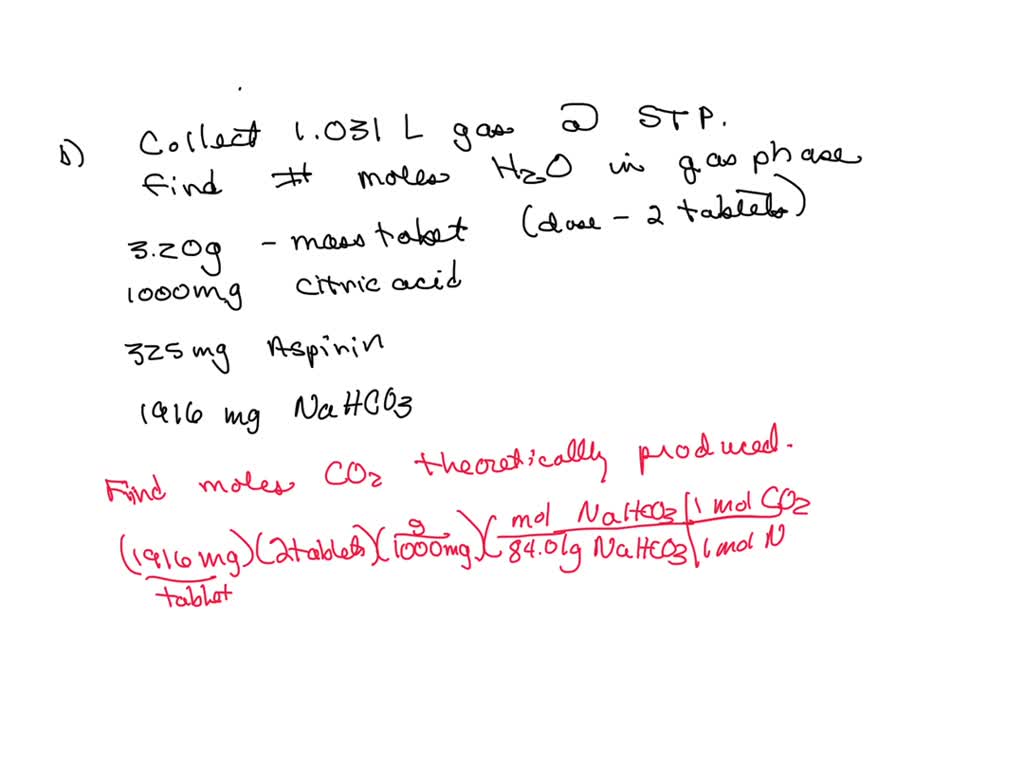 b) Collect 1.031 L gas @ STP.
find # moles H2O in gas phase
3.20g - mass tablet (dose - 2 tablets)
1000mg citric acid
325 mg Aspirin
1916 mg NaHCO3
Find moles CO2 theoretically produced.
(1916 mg / tablet)(2 tablets)(g / 1000mg)(mol NaHCO3 / 84.01g NaHCO3 | 1 mol CO2 / 1 mol N